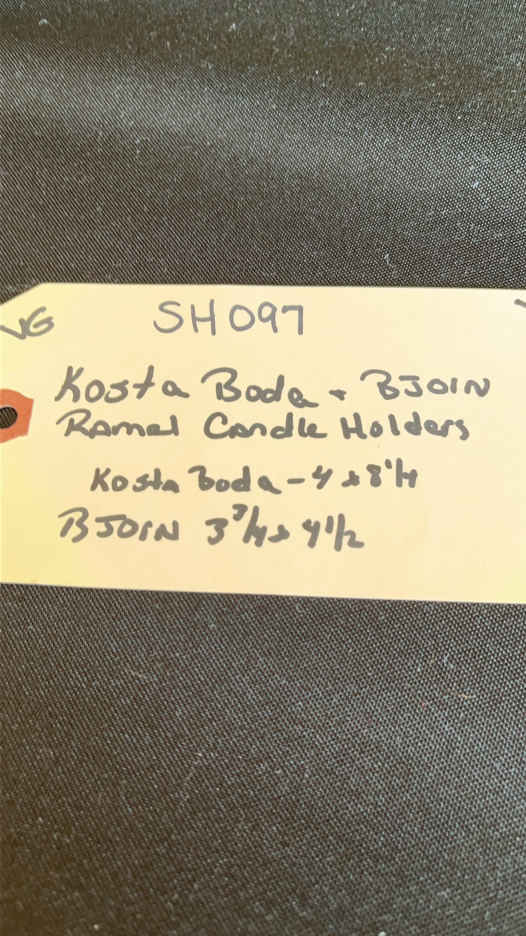 VG
SH097
Kosta Boda + BJOIN
Ramel Candle Holders
Kosta Boda - 4 x 8 1/4
BJOIN 3 3/4 x 4 1/2